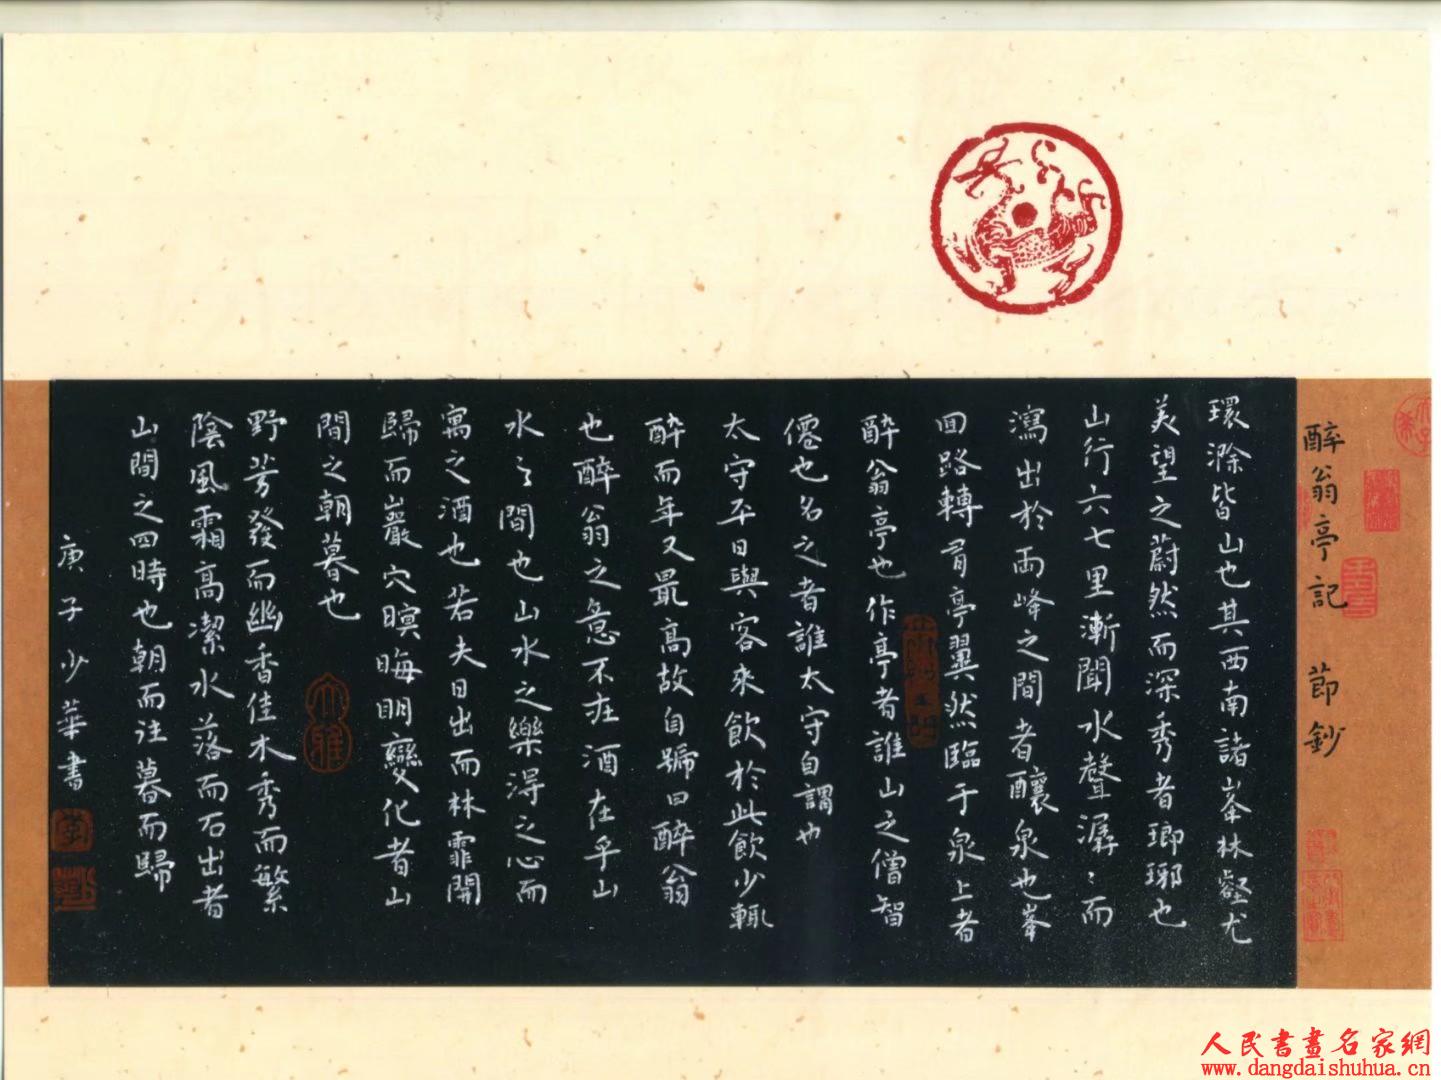 醉翁亭記 節鈔
環滁皆山也其西南諸峯林壑尤
美望之蔚然而深秀者瑯琊也
山行六七里漸聞水聲潺〻而
瀉出於兩峰之間者釀泉也峯
回路轉有亭翼然臨于泉上者
醉翁亭也作亭者誰山之僧智
僊也名之者誰太守自謂也
太守平日與客來飲於此飲少輒
醉而年又最高故自號曰醉翁
也醉翁之意不在酒在乎山
水之間也山水之樂得之心而
寓之酒也若夫日出而林霏開
歸而巖穴暝晦明變化者山
間之朝暮也
野芳發而幽香佳木秀而繁
陰風霜高潔水落而石出者
山間之四時也朝而往暮而歸
庚子少華書
大雅
人民書畫名家網
www.dangdaishuhua.cn